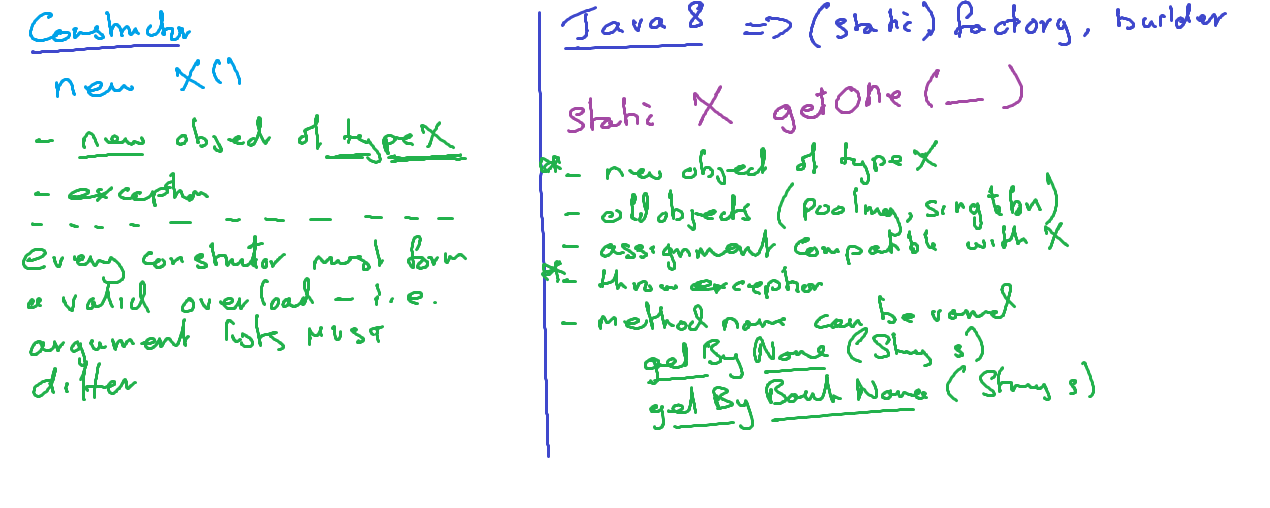 Constructor
new X()
- new object of type X
- exception
every construtor must form
a valid overload - i.e.
argument lists MUST
differ
Java 8 => (static) factory, builder
static X getOne (__)
* - new object of type X
- old objects (pooling, singleton)
- assignment compatible with X
* - throw exception
- method name can be varied
get By Name (String s)
get By Book Name (String s)